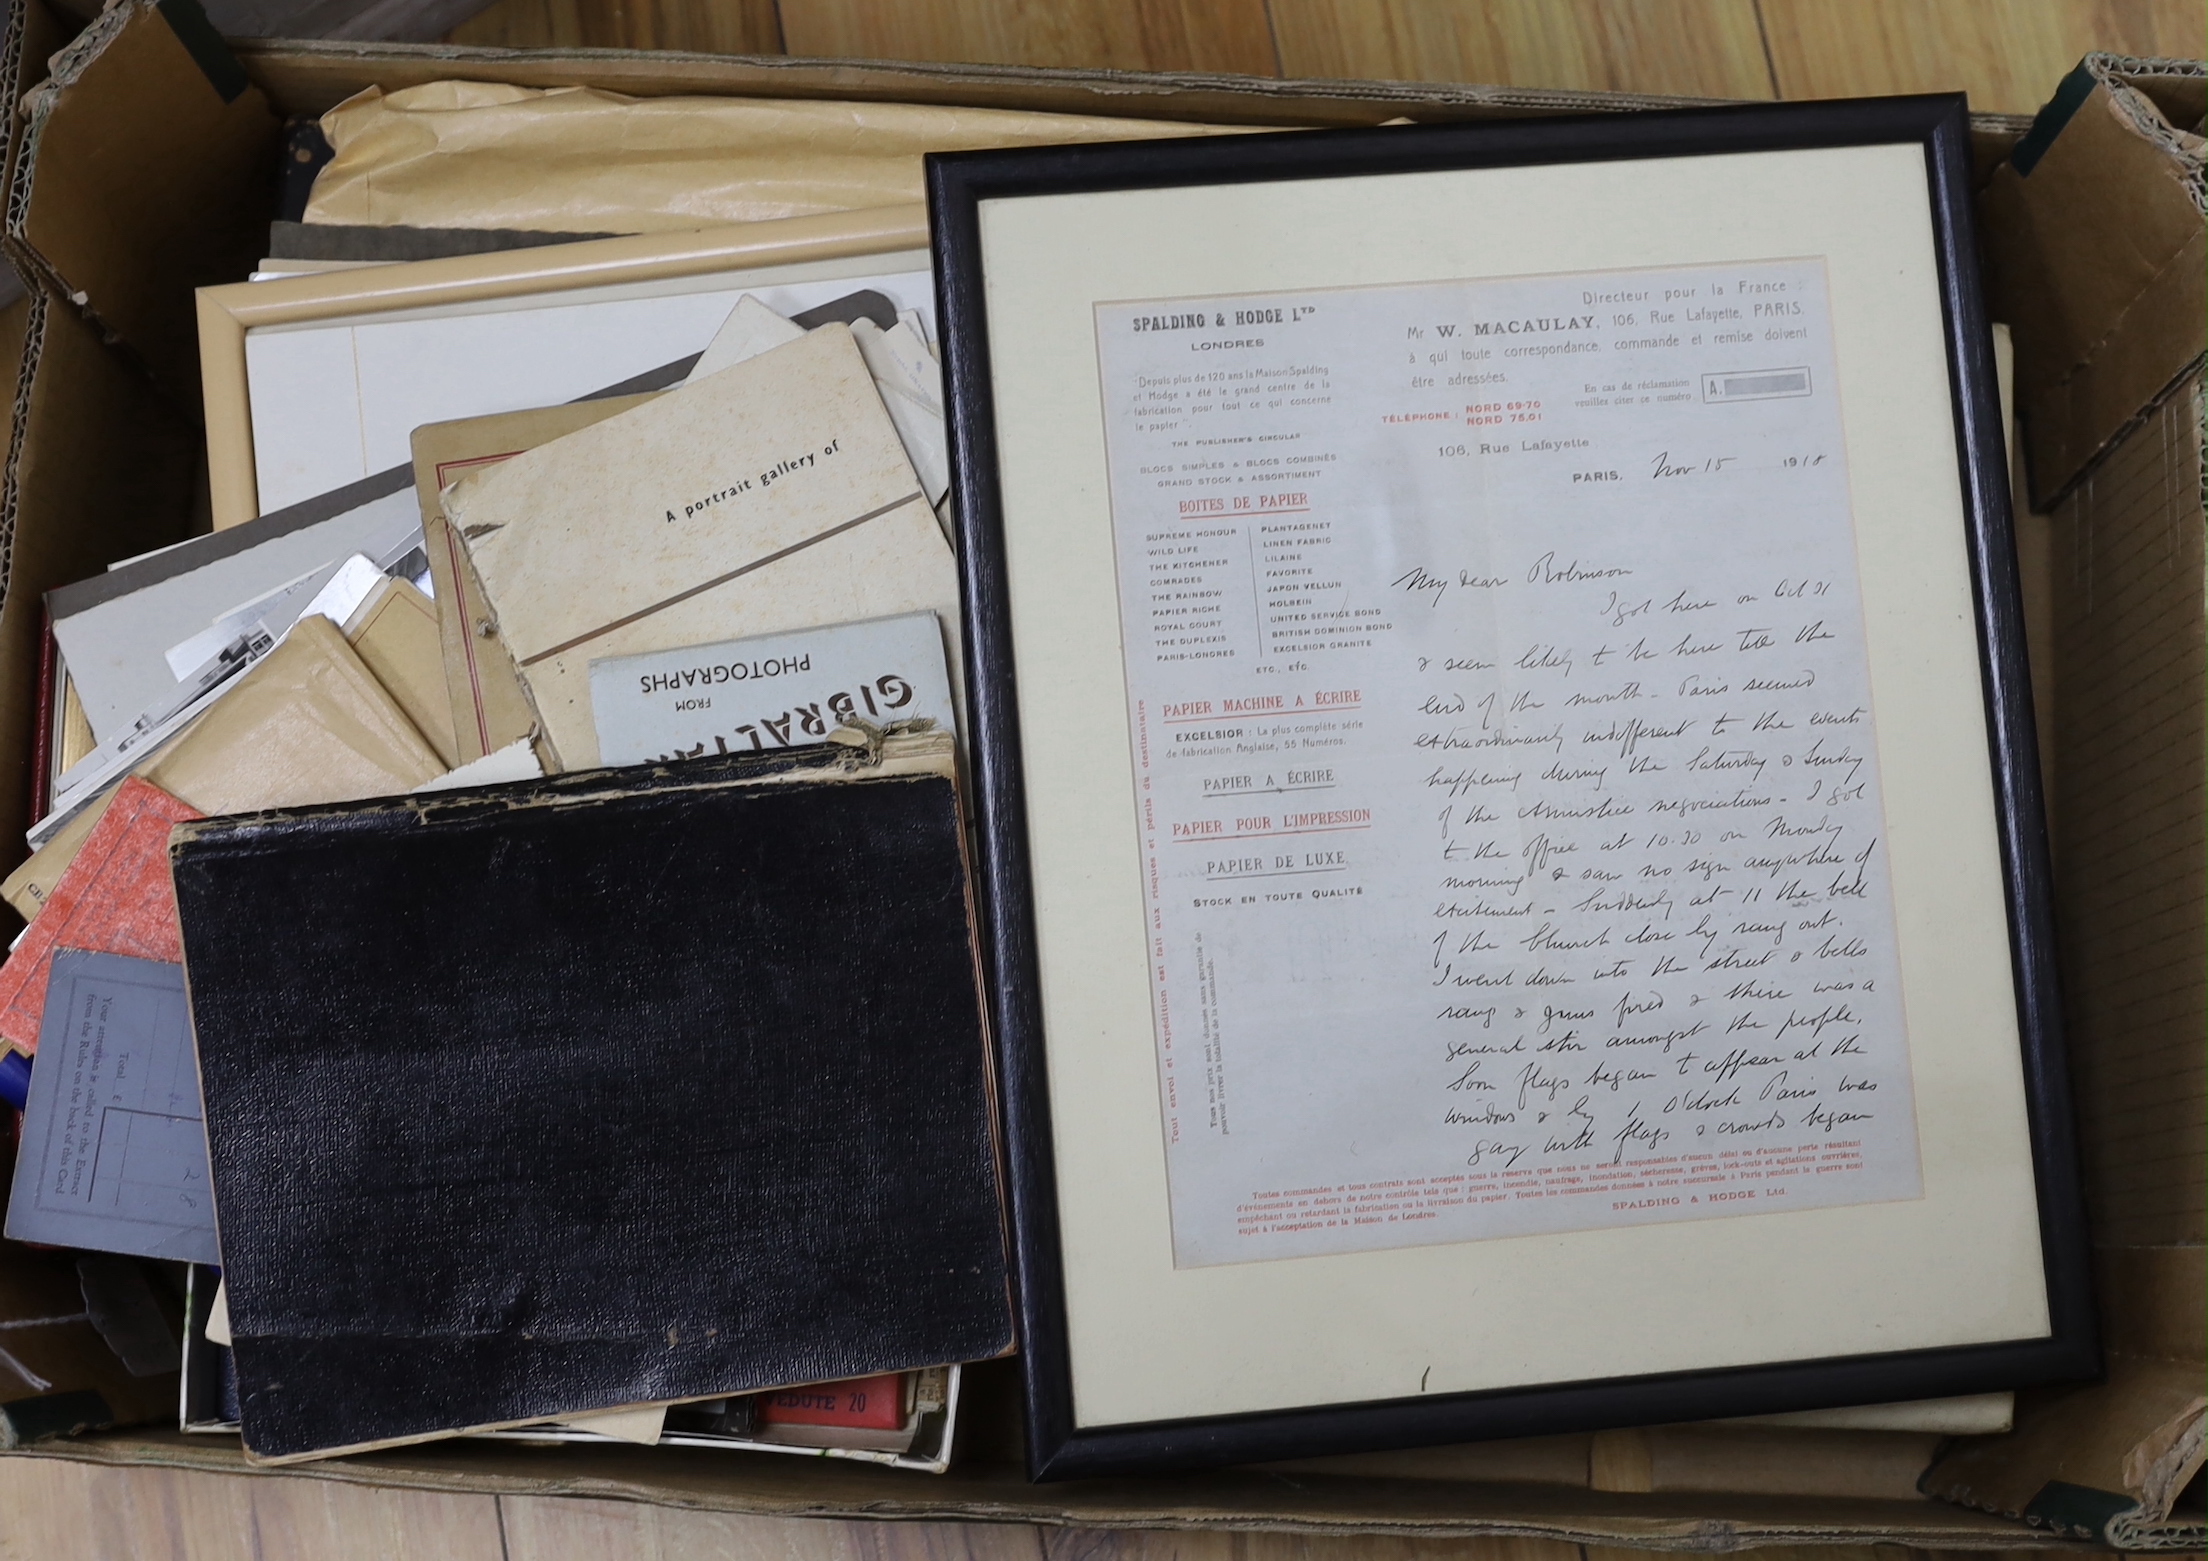 A portrait gallery of
GIBRALTAR
FROM
PHOTOGRAPHS
Your attention is called to the Extract
from the Rules on the back of this Card
Total £
28
VEDUTE 20
SPALDING & HODGE LTD
LONDRES
"Depuis plus de 120 ans la Maison Spalding
et Hodge a été le grand centre de la
fabrication pour tout ce qui concerne
le papier".
THE PUBLISHER'S CIRCULAR
BLOCS SIMPLES & BLOCS COMBINÉS
GRAND STOCK & ASSORTIMENT
BOITES DE PAPIER
SUPREME HONOUR
WILD LIFE
THE KITCHENER
COMRADES
THE RAINBOW
PAPIER RICHE
ROYAL COURT
THE DUPLEXIS
PARIS-LONDRES
PLANTAGENET
LINEN FABRIC
LILAINE
FAVORITE
JAPON VELLUN
HOLBEIN
UNITED SERVICE BOND
BRITISH DOMINION BOND
EXCELSIOR GRANITE
ETC., ETC.
PAPIER MACHINE A ÉCRIRE
EXCELSIOR : La plus complète série
de fabrication Anglaise, 55 Numéros.
PAPIER A ÉCRIRE
PAPIER POUR L'IMPRESSION
PAPIER DE LUXE
STOCK EN TOUTE QUALITÉ
Tout envoi et expédition est fait aux risques et périls du destinataire
Tous nos prix sont donnés sans garantie de
pouvoir livrer la totalité de la commande.
Directeur pour la France :
Mr W. MACAULAY, 106, Rue Lafayette, PARIS.
à qui toute correspondance, commande et remise doivent
être adressées.
En cas de réclamation
veuillez citer ce numéro
A.
TÉLÉPHONE : NORD 69-70
NORD 75.01
106, Rue Lafayette
PARIS, Nov 15 1918
My dear Robinson
I got here on Oct 31
& seem likely to be here till the
end of the month - Paris seemed
extraordinarily indifferent to the events
happening during the Saturday & Sunday
of the Armistice negociations - I got
to the office at 10.30 on Monday
morning & saw no sign anywhere of
excitement - Suddenly at 11 the bell
of the church close by rang out.
I went down into the street & bells
rang & guns fired & there was a
general stir amongst the people.
Soon flags began to appear at the
windows & by 1 o'clock Paris was
gay with flags & crowds began
Toutes commandes et tous contrats sont acceptés sous la réserve que nous ne serons responsables d'aucun délai ou d'aucune perte résultant
d'événements en dehors de notre contrôle tels que : guerre, incendie, naufrage, inondation, sécheresse, grèves, lock-outs et agitations ouvrières,
empêchant ou retardant la fabrication ou la livraison du papier. Toutes les commandes données à notre succursale à Paris pendant la guerre sont
sujet à l'acceptation de la Maison de Londres.
SPALDING & HODGE Ltd.